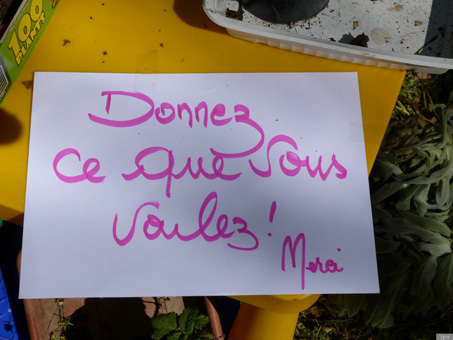 100
PLANTS
Donnez
ce que vous
voulez!
Merci